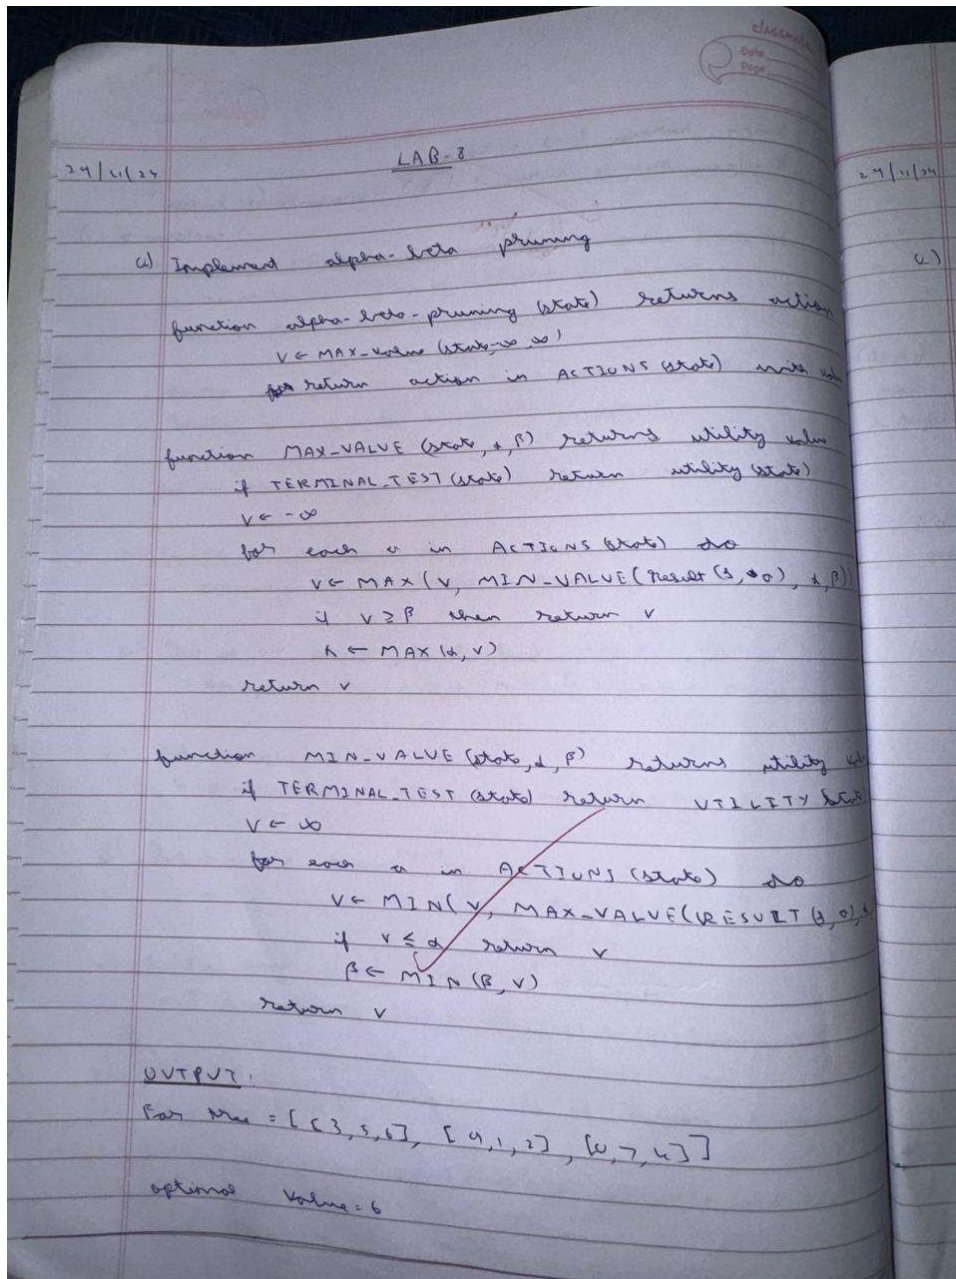 classmate
Date
Page
LAB-8
29/11/24
29/11/24
a) Implement alpha-beta pruning
function alpha-beta-pruning (state) returns action
V ← MAX-Value (state, -∞, ∞)
return action in ACTIONS (state) with value
function MAX-VALUE (state, α, β) returns utility value
if TERMINAL-TEST (state) return utility (state)
V ← -∞
for each a in ACTIONS (state) do
V ← MAX (V, MIN-VALUE (result (s, a), α, β))
if V ≥ β then return V
α ← MAX (α, V)
return V
function MIN-VALUE (state, α, β) returns utility
if TERMINAL-TEST (state) return UTILITY State
V ← ∞
for each a in ACTIONS (state) do
V ← MIN (V, MAX-VALUE (RESULT (s, a),
if V ≤ α return V
β ← MIN (β, V)
return V
OUTPUT:
For tree = [[3, 5, 6], [9, 1, 2], [0, 7, 4]]
optimal value = 6